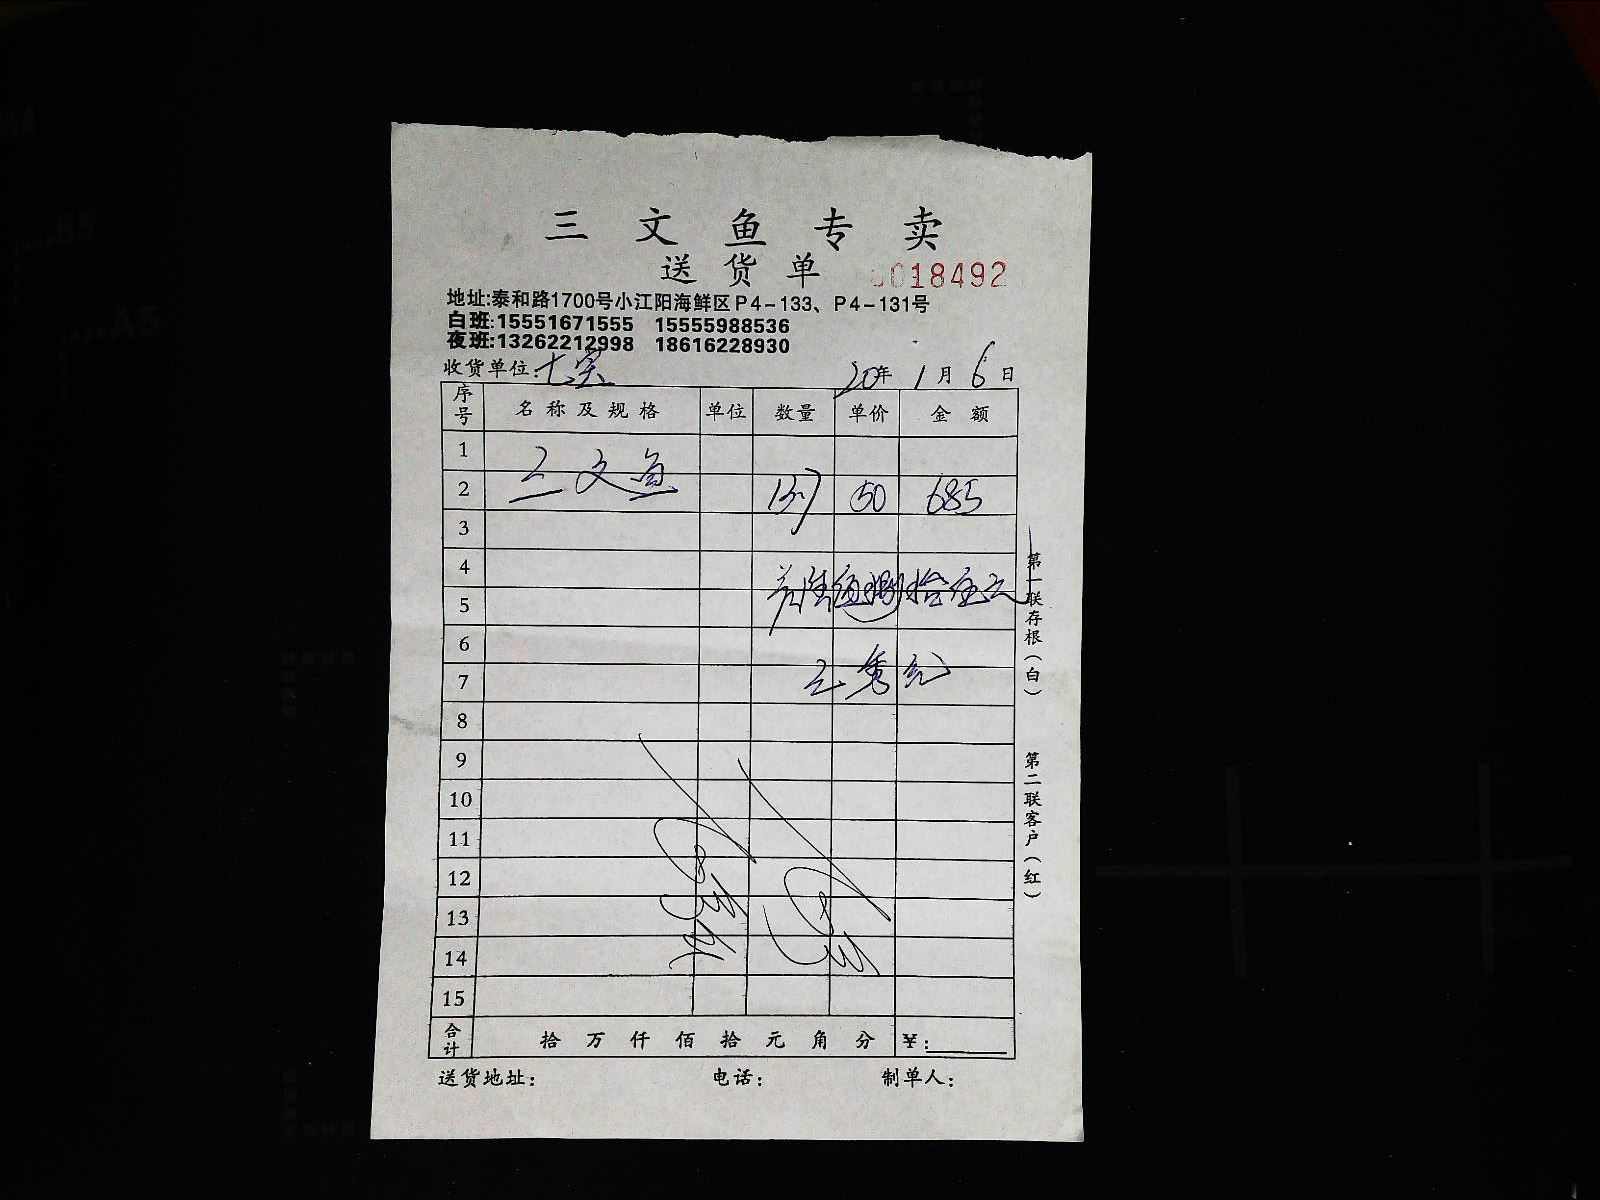 三文鱼专卖
送货单 0018492
地址:泰和路1700号小江阳海鲜区P4-133、P4-131号
白班:15551671555 15555988536
夜班:13262212998 18616228930
收货单位: 七宝 20年 1月 6日
序号 名称及规格 单位 数量 单价 金额
1
2 三文鱼 13.7 50 685
3
4
5 陆佰捌拾伍元
6
7 王秀
8
9
10
11
12
13
14
15
合计 拾 万 仟 佰 拾 元 角 分 ¥:
送货地址: 电话: 制单人:
第一联存根(白)
第二联客户(红)